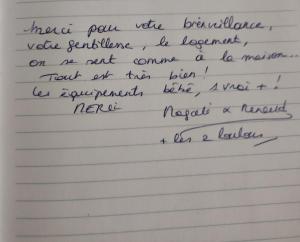 Merci pour votre bienveillance,
votre gentillesse, le logement,
on se sent comme à la maison...
Tout est très bien !
Les équipements bébé, 1 vrai + !
MERCI
Magali & Renaud
+ les 2 loulous